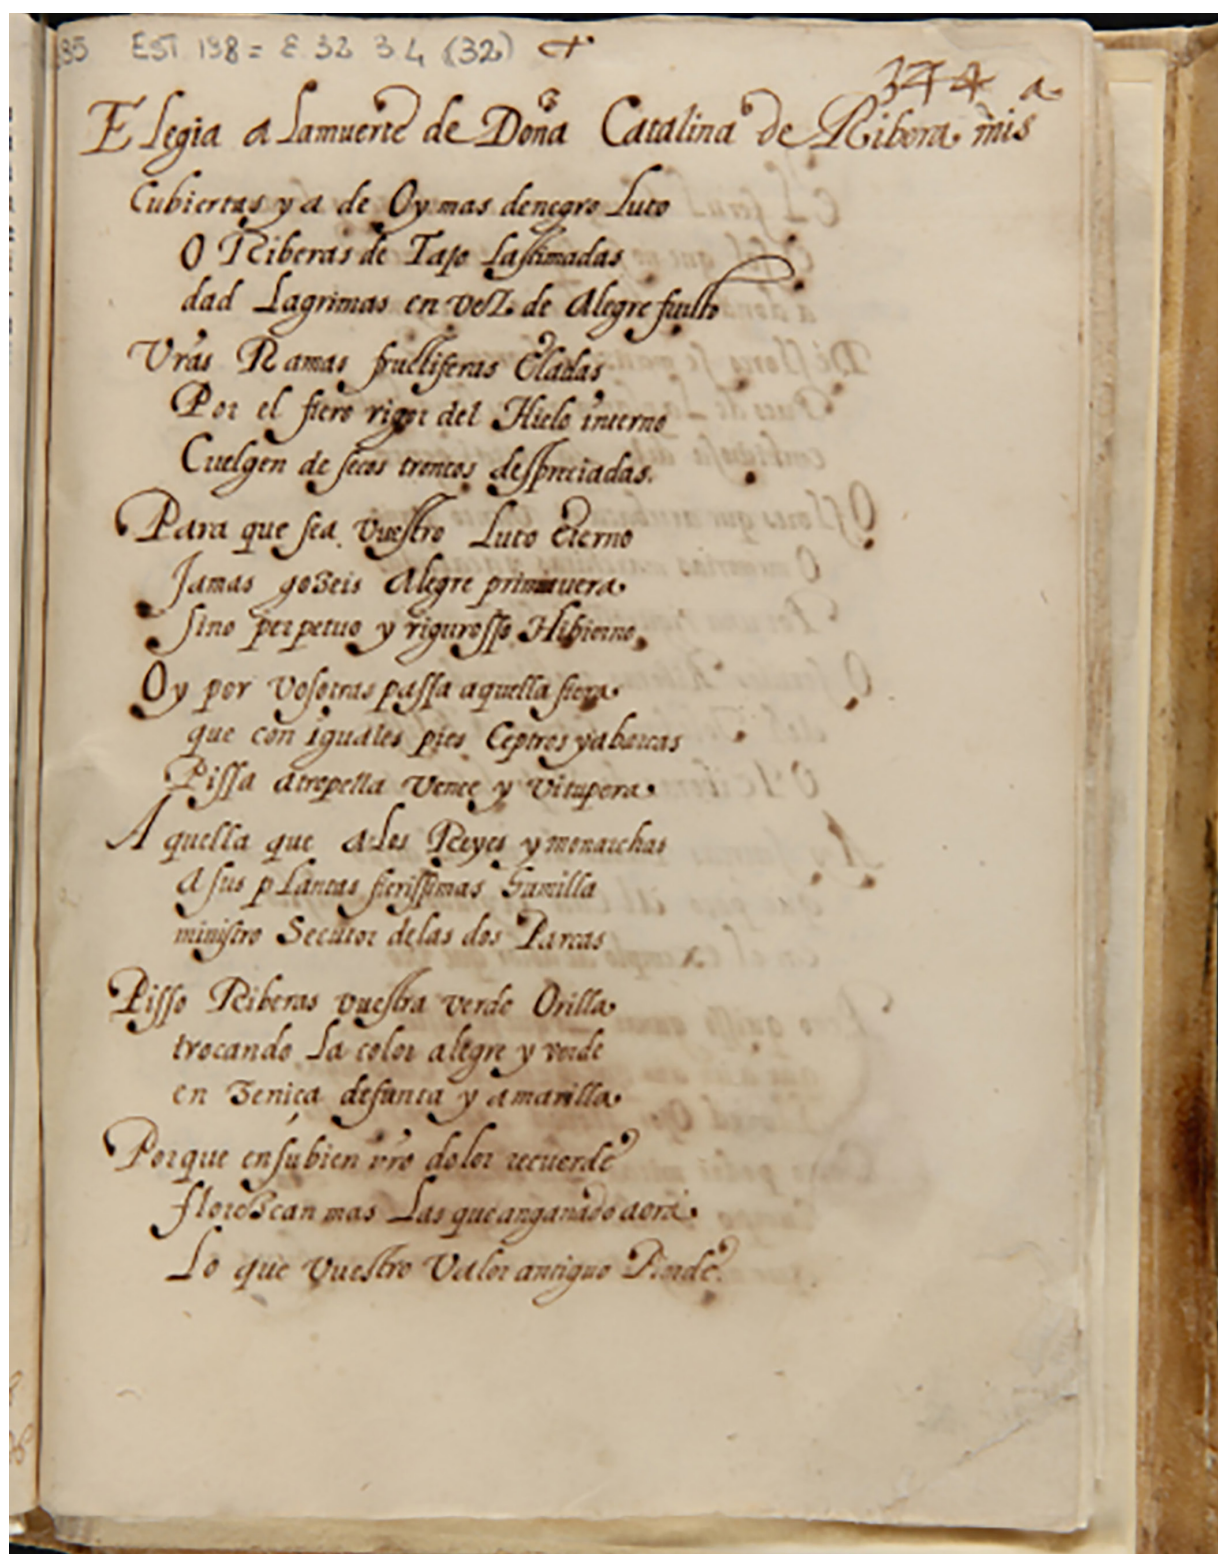 35 EST 138 = E. 32 3.4 (32)
344 a
Elegia a Lamuerte de Doña Catalina de Ribera mis
Cubiertas ya de Oy mas denegro Luto
O Riberas de Tajo Lastimadas
dad Lagrimas en vez de Alegre fruto
Vrãs Ramas fructiferas Eladas
Por el fiero rigor del Hielo interno
Cuelgen de secos troncos despreciadas.
Para que sea vuestro Luto Eterno
Jamas gozeis Alegre primauera
sino perpetuo y rigurosso Hibierno
Oy por vosotras passa aquella fiera
que con iguales pies Ceptros yabarcas
Pissa atropella vence y vitupera
Aquella que alos Reyes y monarchas
a sus pLantas fierissimas humilla
ministro Secutor delas dos Parcas
Pisso Riberas vuestra verde Orilla
trocando La color alegre y verde
en zeniça defunta y amarilla
Porque ensubien vrõ dolor recuerde
florezcan mas Las queanganado aora
Lo que vuestro Valor antiguo Pinde